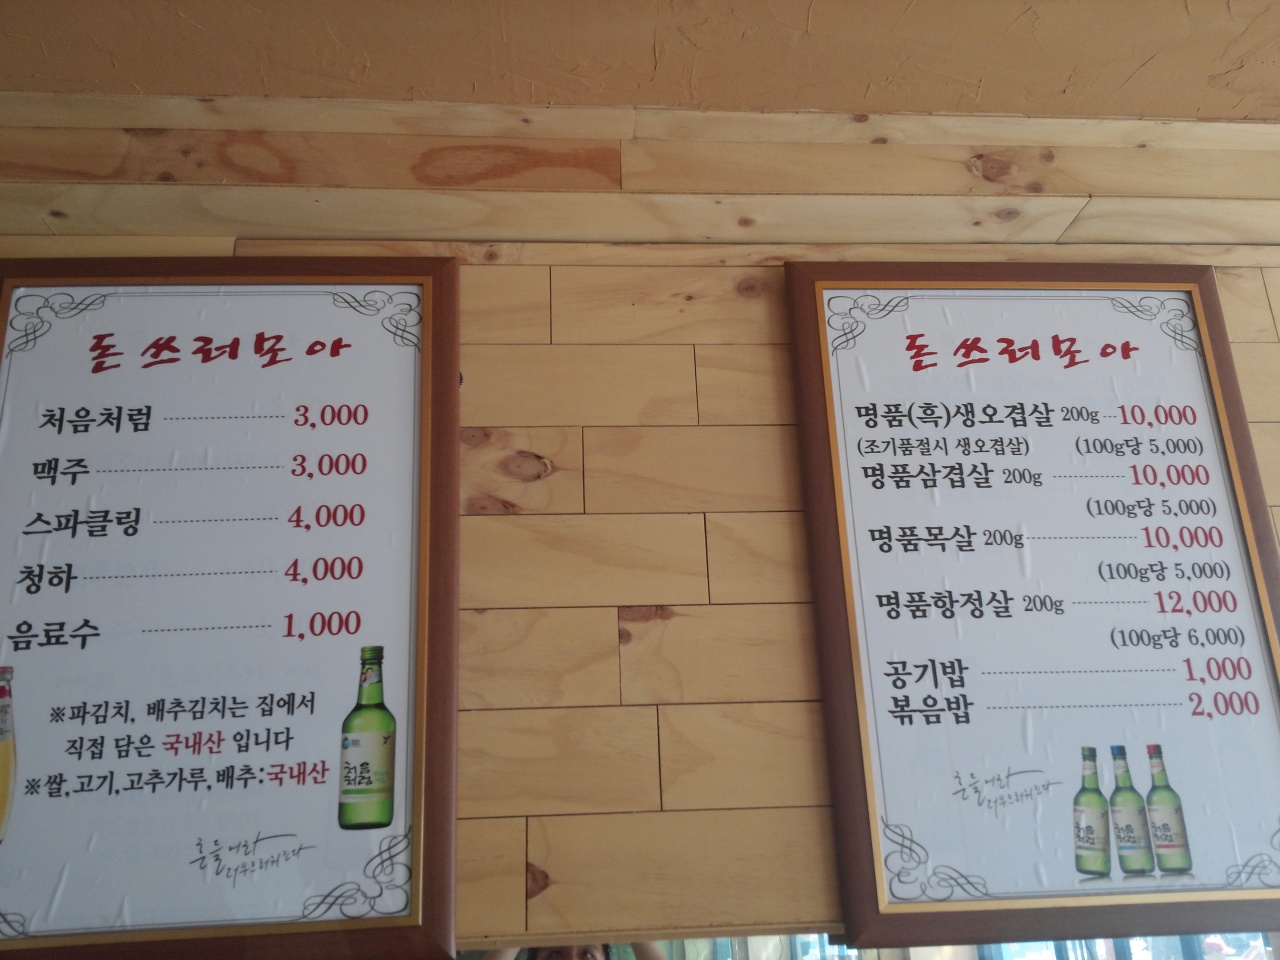 돈 쓰러 모아
처음처럼 3,000
맥주 3,000
스파클링 4,000
청하 4,000
음료수 1,000
※파김치, 배추김치는 집에서
직접 담은 국내산 입니다
※쌀,고기,고추가루,배추:국내산
처음처럼
흔들어라
더부드러워진다
돈 쓰러 모아
명품(흑)생오겹살 200g 10,000
(조기품절시 생오겹살) (100g당 5,000)
명품삼겹살 200g 10,000
(100g당 5,000)
명품목살 200g 10,000
(100g당 5,000)
명품항정살 200g 12,000
(100g당 6,000)
공기밥 1,000
볶음밥 2,000
흔들어라
더부드러워진다
처음처럼 처음처럼 처음처럼